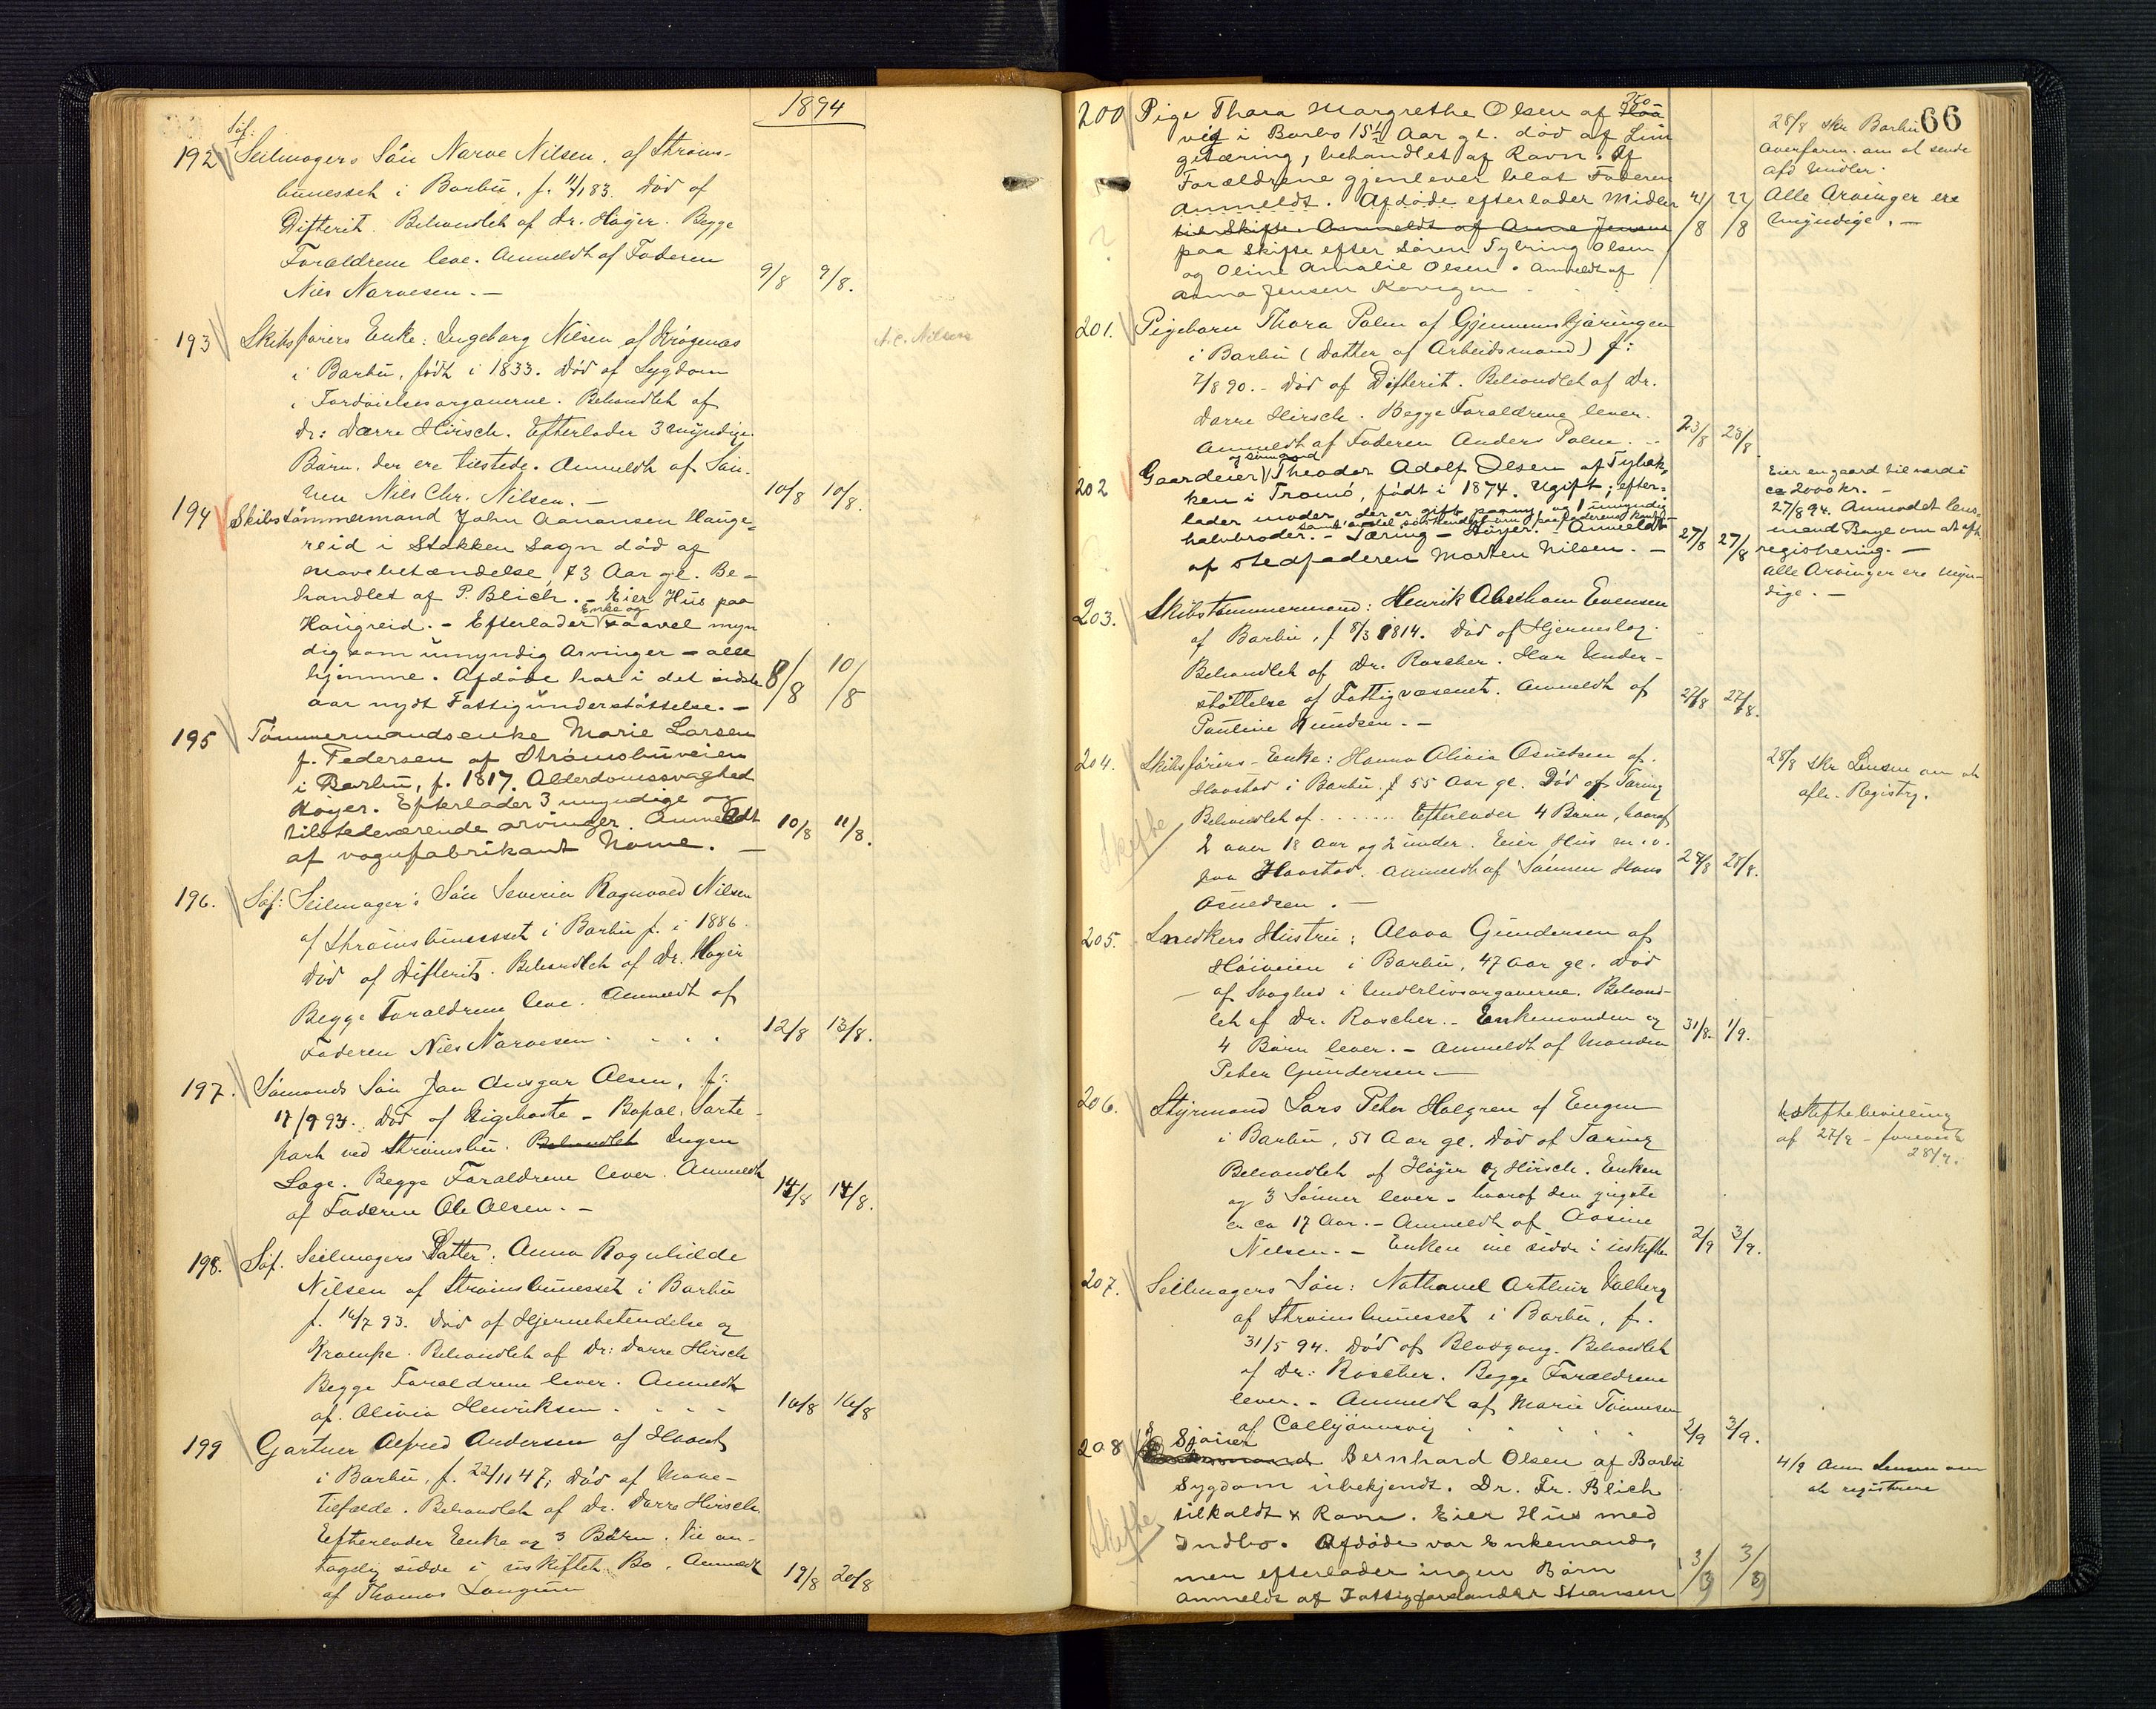 1894
Søf:
192 Seilmagers Søn Narve Nilsen, af Strøms-
bunesset i Barbu, f. 11/1 83. Død af
Difterit. Behandlet af Dr. Høyer. Begge
Forældrene leve. Anmeldt af Faderen
Niels Narvesen. — 9/8 9/8.
193 Skibsførers Enke: Ingeborg Nilsen af Krøgenæs
i Barbu, født i 1833. Død af Sygdom
i Fordøielsesorganerne. Behandlet af
Dr: Darre Hirsch. Efterlader 3 myndige
Børn, der ere tilstede. Anmeldt af Søn-
nen Niels Chr. Nilsen. — 10/8 10/8.
N. C. Nilsen
194 Skibstømmermand John Aanonsen Hauge-
reid i Stokken Sogn død af
Mavebetændelse, 73 Aar gl. Be-
handlet af P. Blich. - Eier Hus paa
Haugreid. - Efterlader Enke og saavel myn
dig som umyndig Arvinger - alle
hjemme. Afdøde har i det sidste
aar nydt Fattigunderstøttelse. — 8/8 10/8
195 Tømmermandsenke Marie Larsen
f. Pedersen af Strømsbuveien
i Barbu, f. 1817. Alderdomssvaghed
Høyer. Efterlader 3 myndige og
tilstedeværende arvinger. Anmeldt
af vognfabrikant Nome. — 10/8 11/8.
196. Søf: Seilmager's Søn Severin Ragnvald Nilsen
af Strømsbunesset i Barbu f. i 1886.
Død af Difterit. Behandlet af Dr. Høyer
Begge Forældrene leve. Anmeldt af
Faderen Niels Narvesen. . . . 12/8 13/8.
197. Sømands Søn Jan Ansgar Olsen, f:
17/9 93. Død af Kighoste - Bopæl: Sorte-
park ved Strømsbu. Behandlet Ingen
Læge. Begge Forældrene lever. Anmeldt
af Faderen Ole Olsen. — 14/8 14/8.
198. Søf. Seilmagers Datter: Anna Ragnhilde
Nilsen af Strømsbunesset i Barbu
f. 16/7 93. Død af Hjernebetendelse og
Krampe. Behandlet af Dr: Darre Hirsch
Begge Forældrene lever. Anmeldt
af Olivia Henriksen. . . . 16/8 16/8
199 Gartner Alfred Andersen af Havst
i Barbu, f. 22/11 47; Død af Mave-
tilfælde. Behandlet af Dr. Darre Hirsch
Efterlader Enke og 3 Børn. Vil an-
tagelig sidde i uskiftet Bo. Anmeldt
af Thomas Langum 19/8 20/8
66
200 Pige Thara Margrethe Olsen af
vig i Barbo 15½ Aar gl. død af Lun
getæring, behandlet af Ravn. Af
Forældrene gjenlever blot Faderen
Anmeldt. Afdøde efterlader Midler
til Skifte. Anmeldt af Anne Jensen
paa Skifte efter Søren Tybring Olsen
og Oline Amalie Olsen. Anmeldt af
Anna Jensen 21/8 22/8
28/8 skr Barbu
overform. om at sende
afd Midler.
Alle Arvinger ere
myndige. —
201. Pigebarn Thora Palm af Gjennemskjæringen
i Barbu (Datter af Arbeidsmand) f:
7/8 90. - Død af Difterit. Behandlet af Dr.
Darre Hirsch. Begge Forældrene lever.
Anmeldt af Faderen Anders Palm. . 23/8 23/8.
og sømand
202 Gaardeier Theodor Adolf Olsen af Tybæk,
ken i Tromø, født i 1874. Ugift; efter-
lader moder, der er gift paany, og 1 umyndig
halvbroder. - Tæring - Høyer. - Anmeldt
af stedfaderen Morten Nilsen. — 27/8 27/8
Eier en gaard til værdi
ca 2000 kr. -
27/8 94. Anmodet lens-
mand Bøge om at aft
registrering. —
Alle Arvinger ere myn-
dige. —
203. Skibstømmermand: Henrik Abraham Evensen
af Barbu, f 8/3 1814. Død af Hjerneslag.
Behandlet af Dr. Roscher. Har Under-
støttelse af Fattigvæsenet. Anmeldt af
Pauline Knudsen. — 27/8 27/8.
204. Skibsførers-Enke: Hanna Olivia Osuldsen af
Havstad i Barbu, f 55 Aar gl. Død af Tæring
Behandlet af ...... Efterlader 4 Børn, hvoraf
2 over 18 Aar og 2 under. Eier Hus m.v.
paa Havstad. Anmeldt af Sønnen Hans
Osuldsen. — 28/8 28/8.
Skifte
28/8 Skr Lensm om at
afh. Registrg.
205. Snedkers Hustru: Alava Gundersen af
Høiveien i Barbu, 47 Aar gl. Død
af Svaghed i Underlivsorganerne. Behand-
let af Dr. Roscher. - Enkemanden og
4 Børn lever. - Anmeldt af Manden
Peter Gundersen. — 31/8. 1/9.
206. Styrmand Lars Peter Holgren af Engen
i Barbu, 51 Aar gl. Død af Tæring
Behandlet af Høyer og Hirsch. Enken
og 3 Sønner lever - hvoraf den yngste
er ca 17 Aar. - Anmeldt af Aasine
Nilsen. - Enken vil sidde i uskifte 2/9 3/9.
Uskiftebevilling
af 27/9 - forevist
28/9.
207. Seilmagers Søn: Nathanel Arthur Valberg
af Strømsbunesset i Barbu, f.
31/5 94. Død af Blodgang. Behandlet
af Dr: Roscher. Begge Forældrene
lever. - Anmeldt af Marie Tønnesen
af Calbjørnsvig 2/9 3/9.
208 Bernhard Olsen af Barbu
Sygdom ubekjendt. Dr. Fr. Blich
tilkaldt x Ravn. Eier Hus med
Indbo. Afdøde var Enkemand,
men efterlader ingen Børn
Anmeldt af Fattigforstander Stransen 3/9 3/9
Skifte
4/9 Anm Lensm om
at registrere